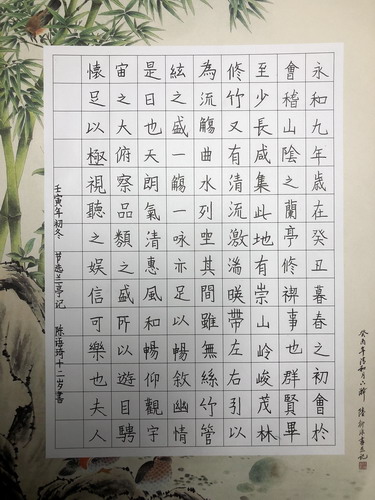 永和九年歲在癸丑暮春之初會於
會稽山陰之蘭亭修禊事也群賢畢
至少長咸集此地有崇山岭峻茂林
修竹又有清流激湍暎帶左右引以
為流觴曲水列坐其間雖無絲竹管
絃之盛一觴一咏亦足以暢敘幽情
是日也天朗氣清惠風和暢仰觀宇
宙之大俯察品類之盛所以遊目騁
懷足以極視聽之娱信可樂也夫人
壬寅年初冬 节选兰亭记 陈语琦十二岁書